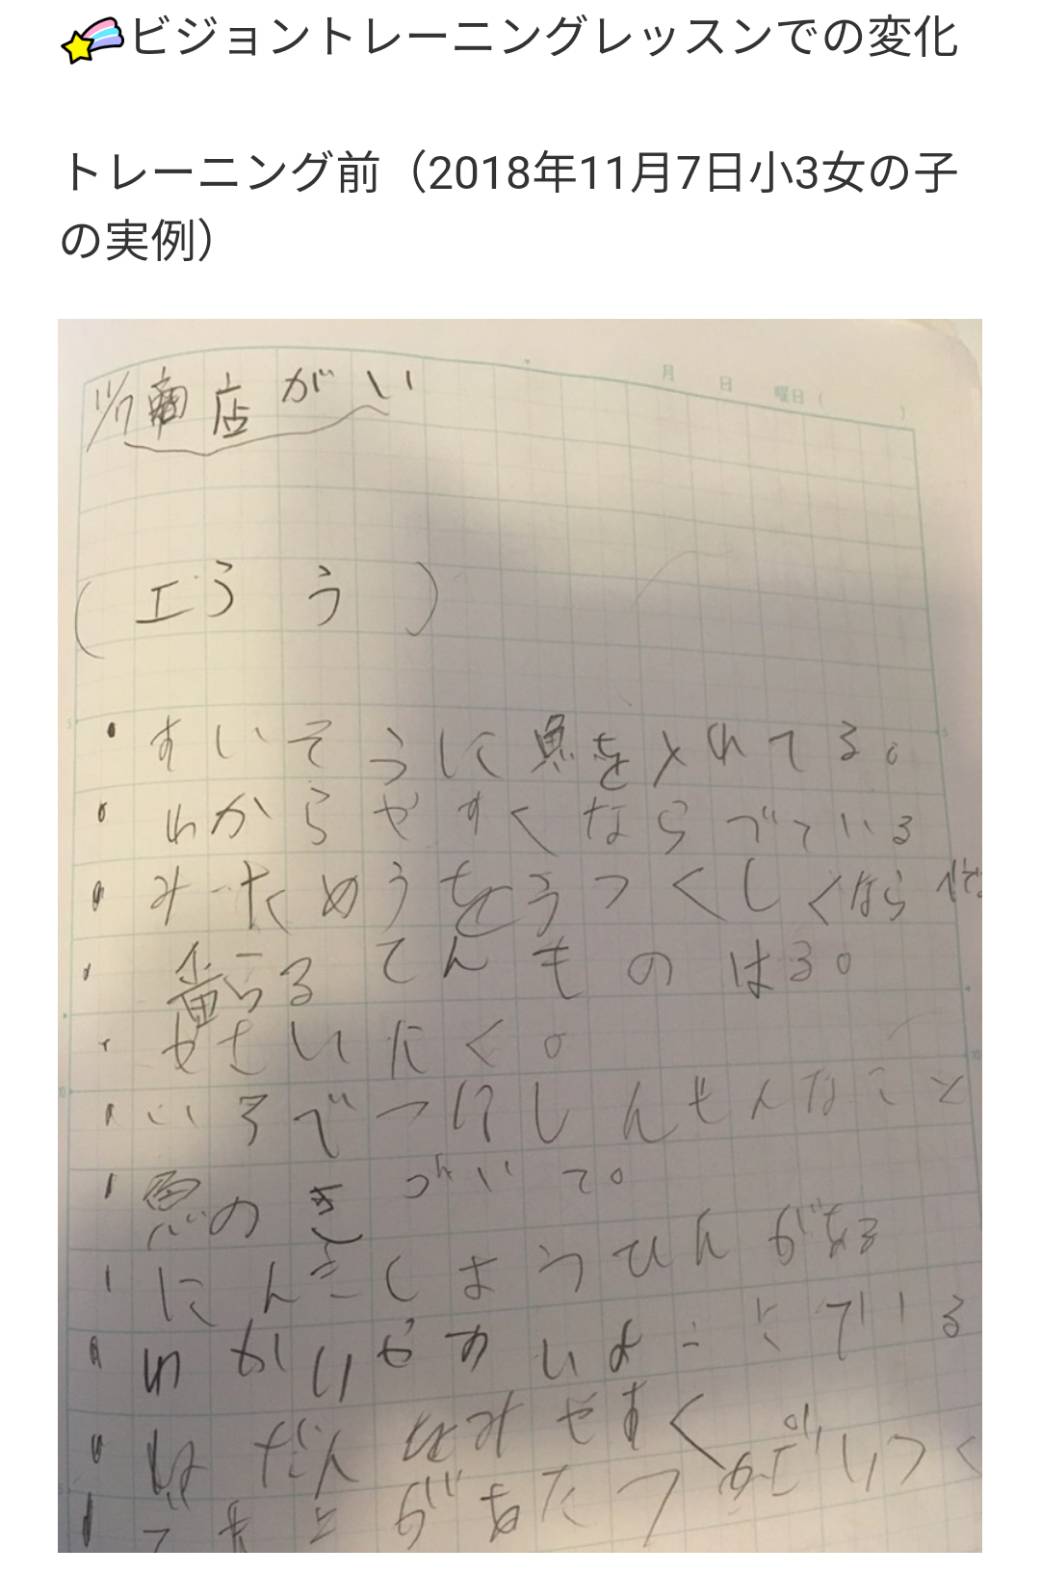 ビジョントレーニングレッスンでの変化
トレーニング前(2018年11月7日小3女の子
の実例)
月 日 曜日( )
11/7 商店がい
(エろう)
・すいそうに魚を入れてる。
・わからやすくならべている
・み-ためうをうつくしくならべ
・らるてんものはる。
・やさいたく。
・いろでつけしんせんなこと
・のきづいて。
・にんきしようひんがある
・わかりやすいよこにている
・ねだんをみやすく
・できとがあたっ